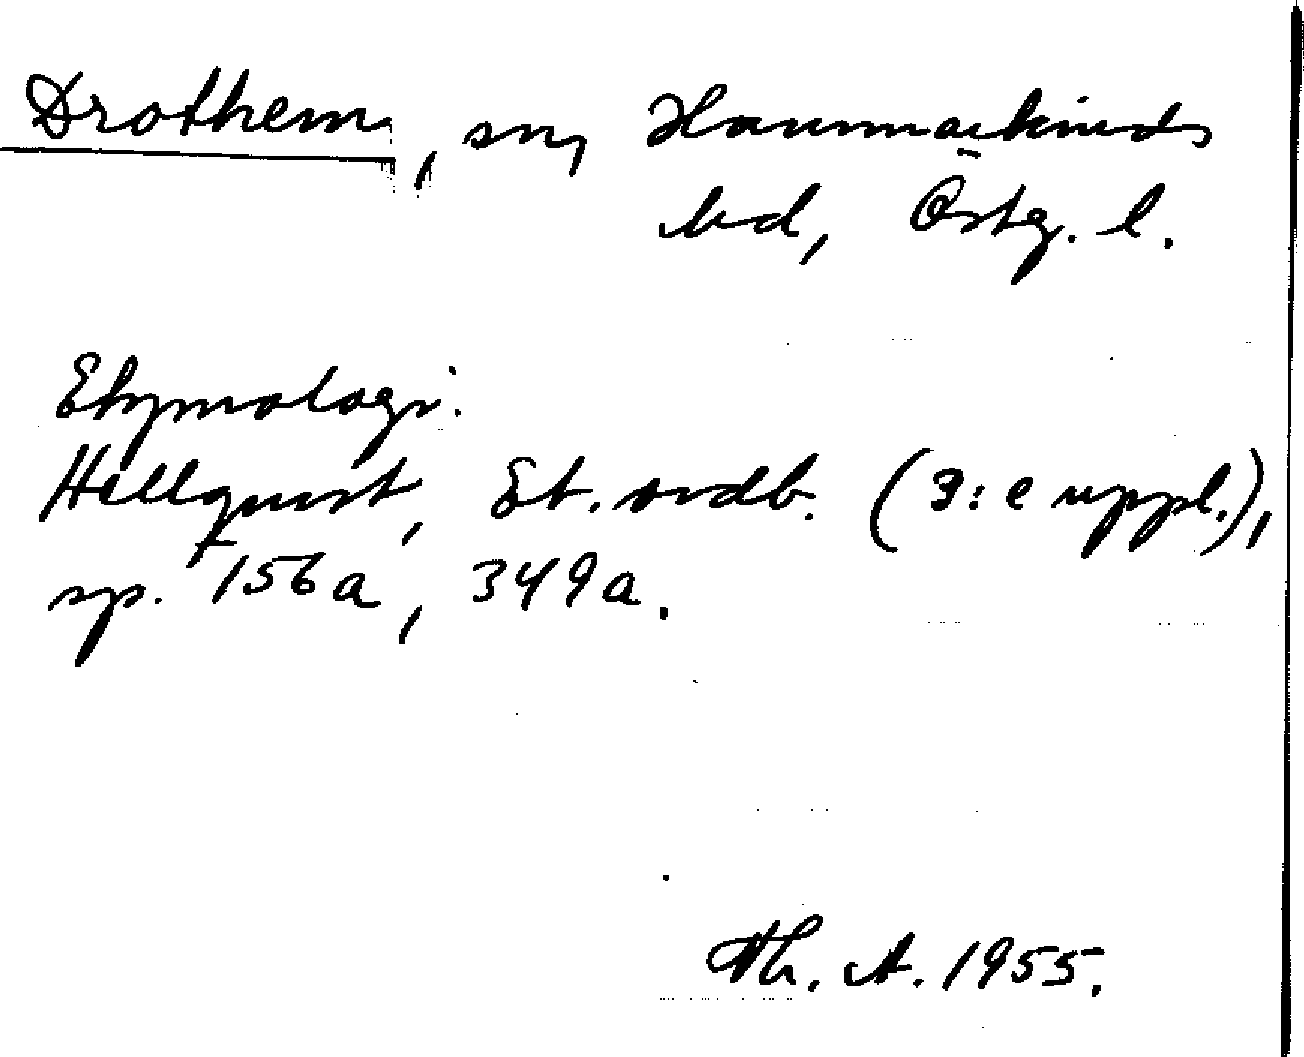 Drothem, sn, Hammarkinds
hd, Östg. l.
Etymologi.
Hellquist, Et. ordb. (3:e uppl.),
sp. 156a, 349a.
Th. A. 1955.